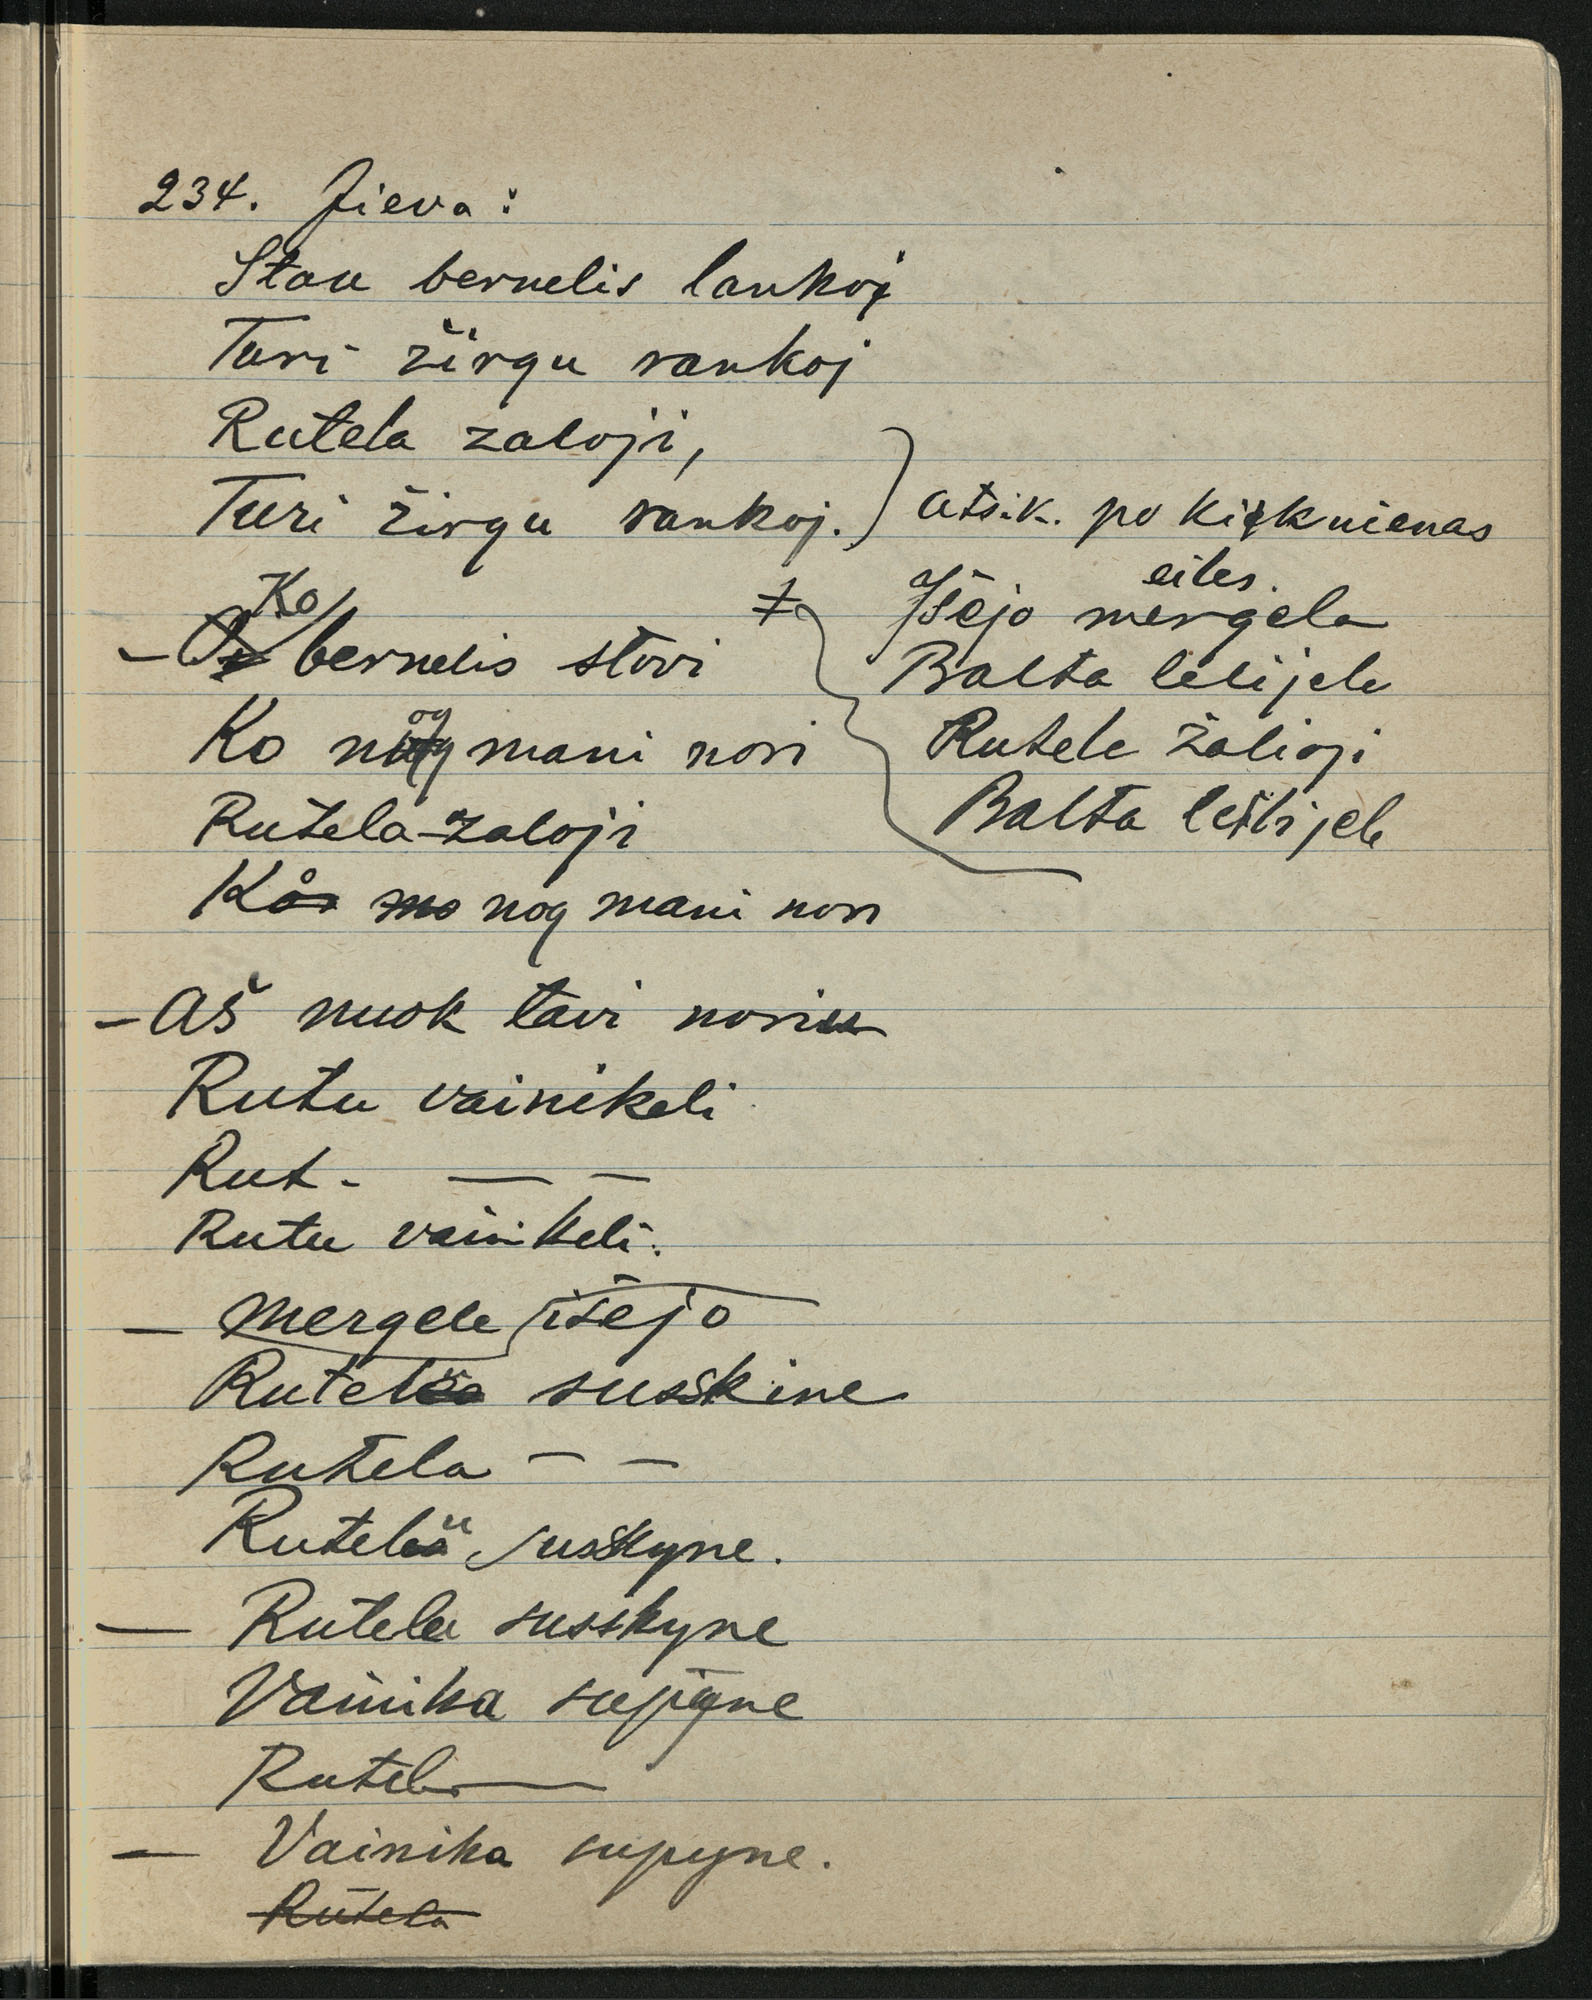 234. Jieva:
Stau bernelis laukoj
Turi žirgu rankoj
Rutela zaloji,
Turi žirgu rankoj. } atsik. po kiekvienas
eiles.
Ko
- bernelis stovi
Ko nog mani nori
Rutela zaloji
Ko nog mani nori
≠ Išėjo mergela
Balta lelijele
Rutele žalioji
Balta lelijele
- Aš nuok tavi noriu
Rutu vainikeli
Rut. — —
Rutu vainikeli.
- Mergele išėjo
Rutelu suskine
Rutela — —
Rutelu suskyne.
— Rutelu susskyne
Vainika supyne
Rutela —
— Vainika supyne.
Rutela